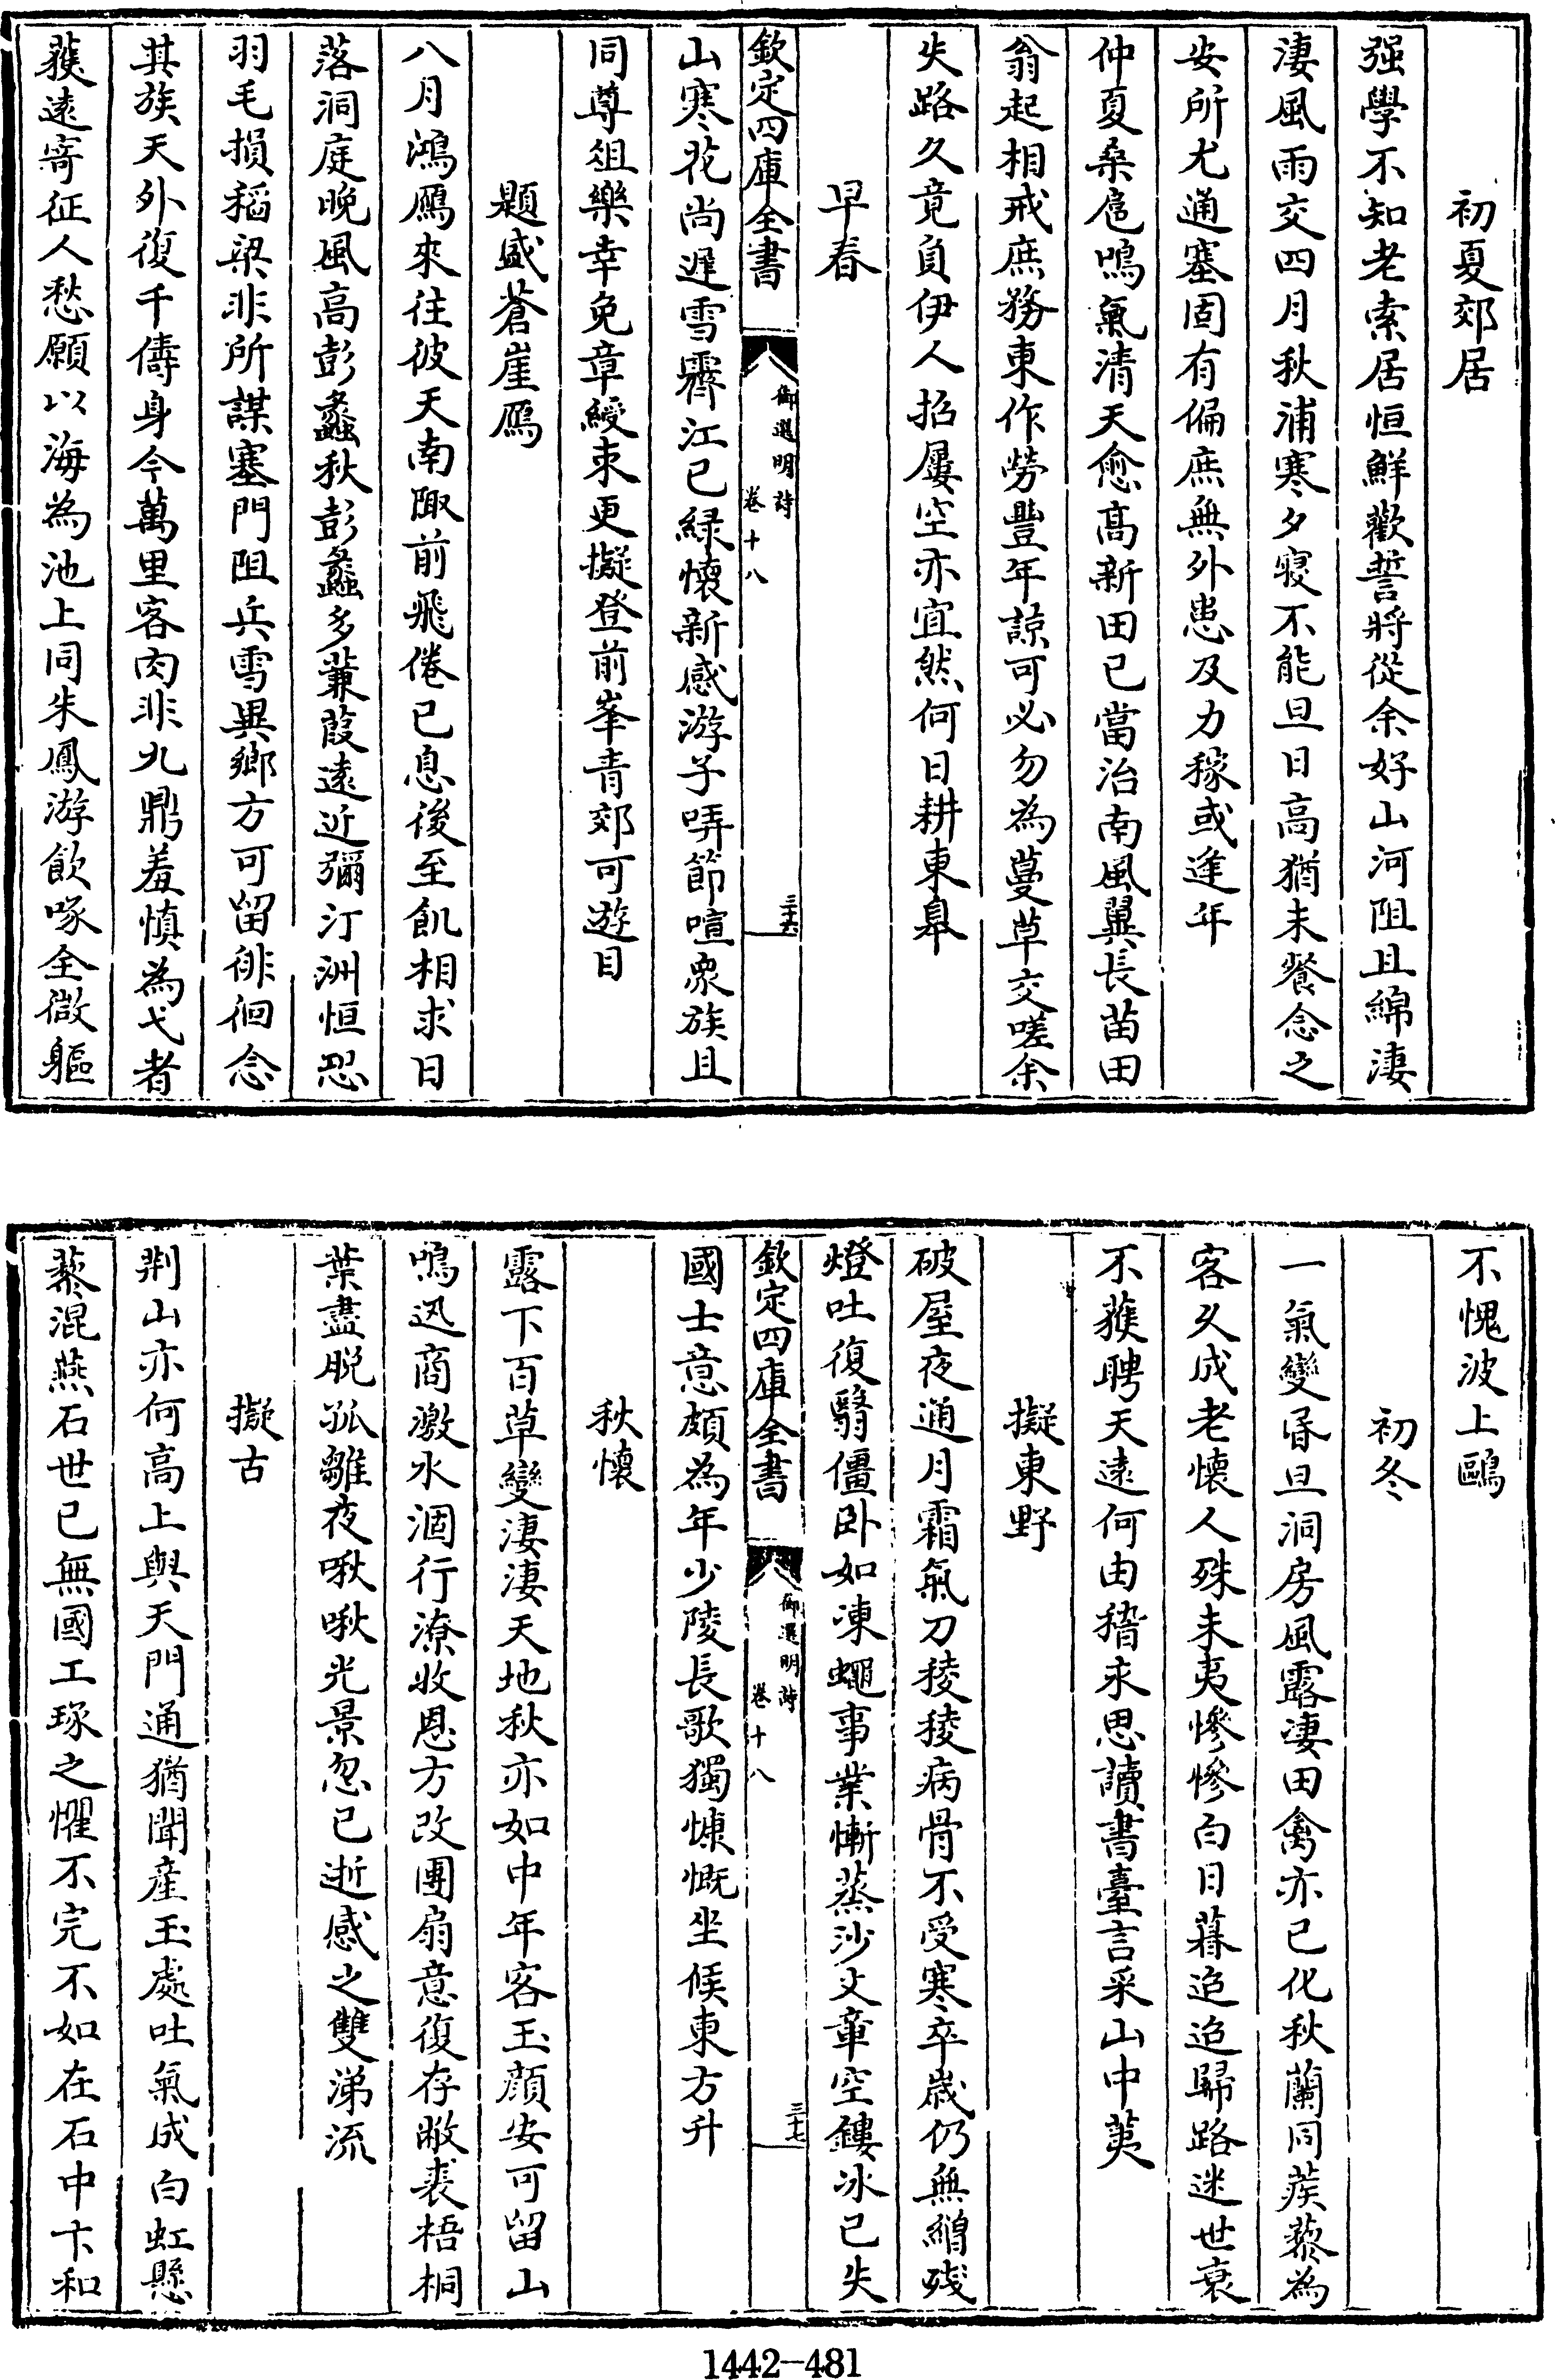 初夏郊居
强學不知老索居恒鮮歡誓將從余好山河阻且綿淒
淒風雨交四月秋浦寒夕寝不能旦日高猶未餐念之
安所尤通塞固有偏庶無外患及力稼或逢年
仲夏桑扈鳴氣清天愈高新田已當治南風翼長苗田
翁起相戒庶務東作勞豐年諒可必勿為蔓草交嗟余
失路久竟負伊人招屢空亦宜然何日耕東臯
早春
欽定四庫全書
御選明詩
卷十八
三十六
山寒花尚遲雪霽江已緑懷新感游子哢節喧衆族且
同尊俎樂幸免章綬束更擬登前峯青郊可遊目
題盛蒼崖鴈
八月鴻鴈來往彼天南陬前飛倦已息後至飢相求日
落洞庭晚風高彭蠡秋彭蠡多蒹葭遠近彌汀洲恒恐
羽毛損稻粱非所謀塞門阻兵雪異鄉方可留徘徊念
其族天外復千儔身今萬里客肉非九鼎羞慎為弋者
䕶遠寄征人愁願以海為池上同朱鳳游飲啄全微軀
不愧波上鷗
初冬
一氣變昏旦洞房風露淒田禽亦已化秋蘭同蒺藜為
客久成老懷人殊未夷慘慘白日暮迢迢歸路迷世衰
不䕶聘天遠何由稽永思讀書臺言采山中荑
擬東野
破屋夜通月霜氣刀稜稜病骨不受寒卒歲仍無繒殘
燈吐復翳僵卧如凍蠅事業慚蒸沙文章空鏤冰已失
欽定四庫全書
御選明詩
卷十八
三十七
國士意頗為年少陵長歌獨慷慨坐候東方升
秋懷
露下百草變淒淒天地秋亦如中年客玉顔安可留山
鳴迅商激水涸行潦收恩方改團扇意復存敝裘梧桐
葉盡脱孤雛夜啾啾光景忽已逝感之雙涕流
擬古
荆山亦何高上與天門通猶聞産玉處吐氣成白虹懸
藜混燕石世已無國工琢之懼不完不如在石中卞和
1442-481